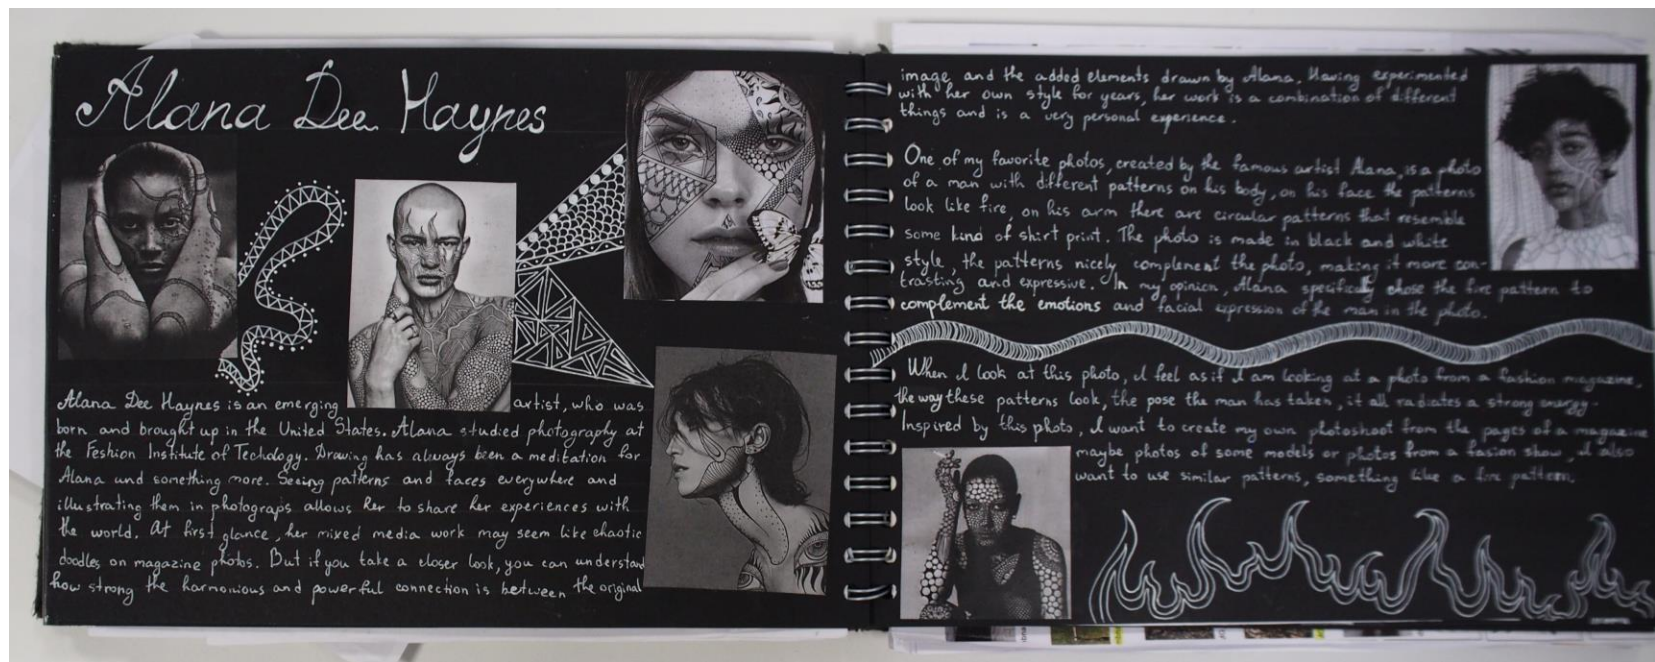 Alana Dee Haynes
Alana Dee Haynes is an emerging artist, who was
born and brought up in the United States. Alana studied photography at
the Feshion Institute of Techology. Drawing has always been a meditation for
Alana und something more. Seeing patterns and faces everywhere and
illustrating them in photograps allows her to share her experiences with
the world. At first glance, her mixed media work may seem like chaotic
doodles on magazine photos. But if you take a closer look, you can understand
how strong the harmonious and powerful connection is between the original
image and the added elements drawn by Alana. Having experimented
with her own style for years, her work is a combination of different
things and is a very personal experience.
One of my favorite photos, created by the famous artist Alana, is a photo
of a man with different patterns on his body, on his face the patterns
look like fire, on his arm there are circular patterns that resemble
some kind of shirt print. The photo is made in black and white
style, the patterns nicely complement the photo, making it more con-
trasting and expressive. In my opinion, Alana specifically chose the fire pattern to
complement the emotions and facial expression of the man in the photo.
When I look at this photo, I feel as if I am looking at a photo from a fashion magazine,
the way these patterns look, the pose the man has taken, it all radiates a strong energy.
Inspired by this photo, I want to create my own photoshoot from the pages of a magazine
maybe photos of some models or photos from a fasion show, I also
want to use similar patterns, something like a fire pattern.